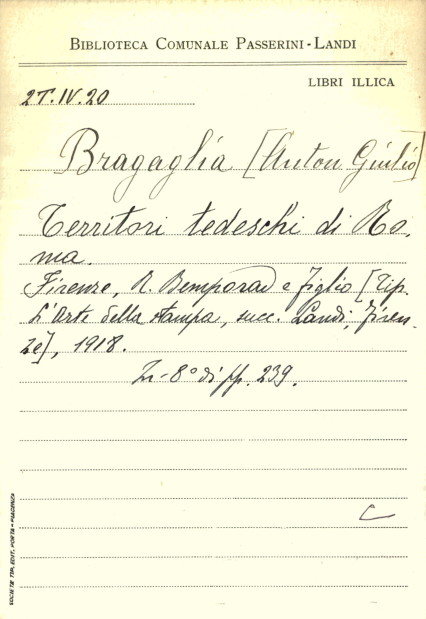 BIBLIOTECA COMUNALE PASSERINI-LANDI
LIBRI ILLICA
2T.IV.20
Bragaglia [Anton Giulio]
Territori tedeschi di Ro-
ma.
Firenze, R. Bemporad e figlio [Tip.
L'Arte della stampa, succ. Landi, Firen-
ze], 1918.
In-8° di pp. 239.
C
SOCIETÀ TIP. EDIT. PORTA-PIACENZA